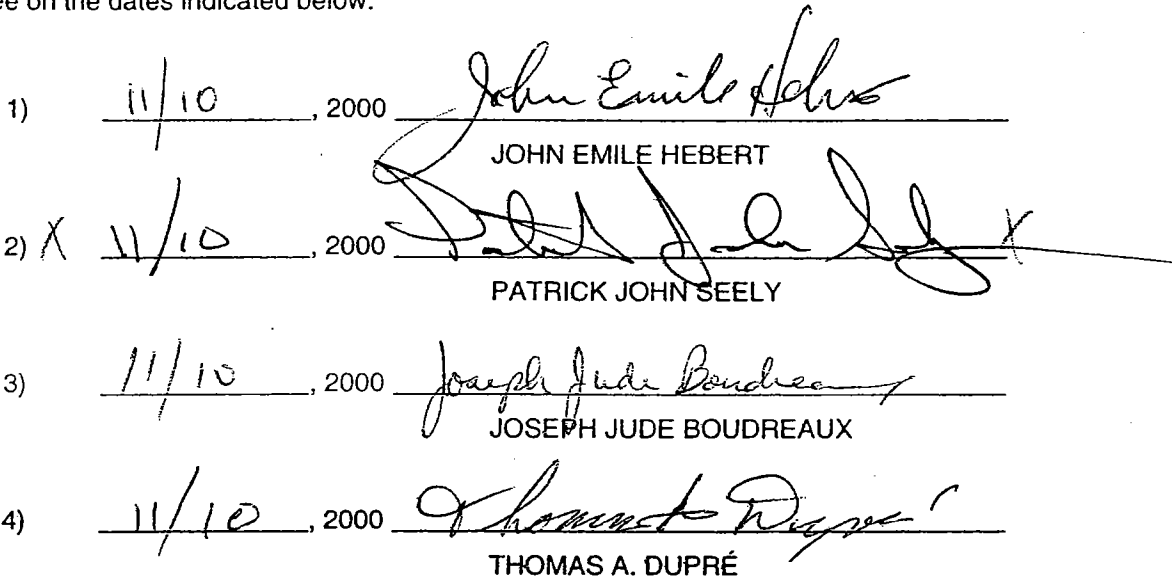 ee on the dates indicated below.
1) 11/10, 2000 John Emile Hebert
JOHN EMILE HEBERT
2) X 11/10, 2000 Patrick John Seely X
PATRICK JOHN SEELY
3) 11/10, 2000 Joseph Jude Boudreaux
JOSEPH JUDE BOUDREAUX
4) 11/10, 2000 Thomas A Dupré
THOMAS A. DUPRÉ